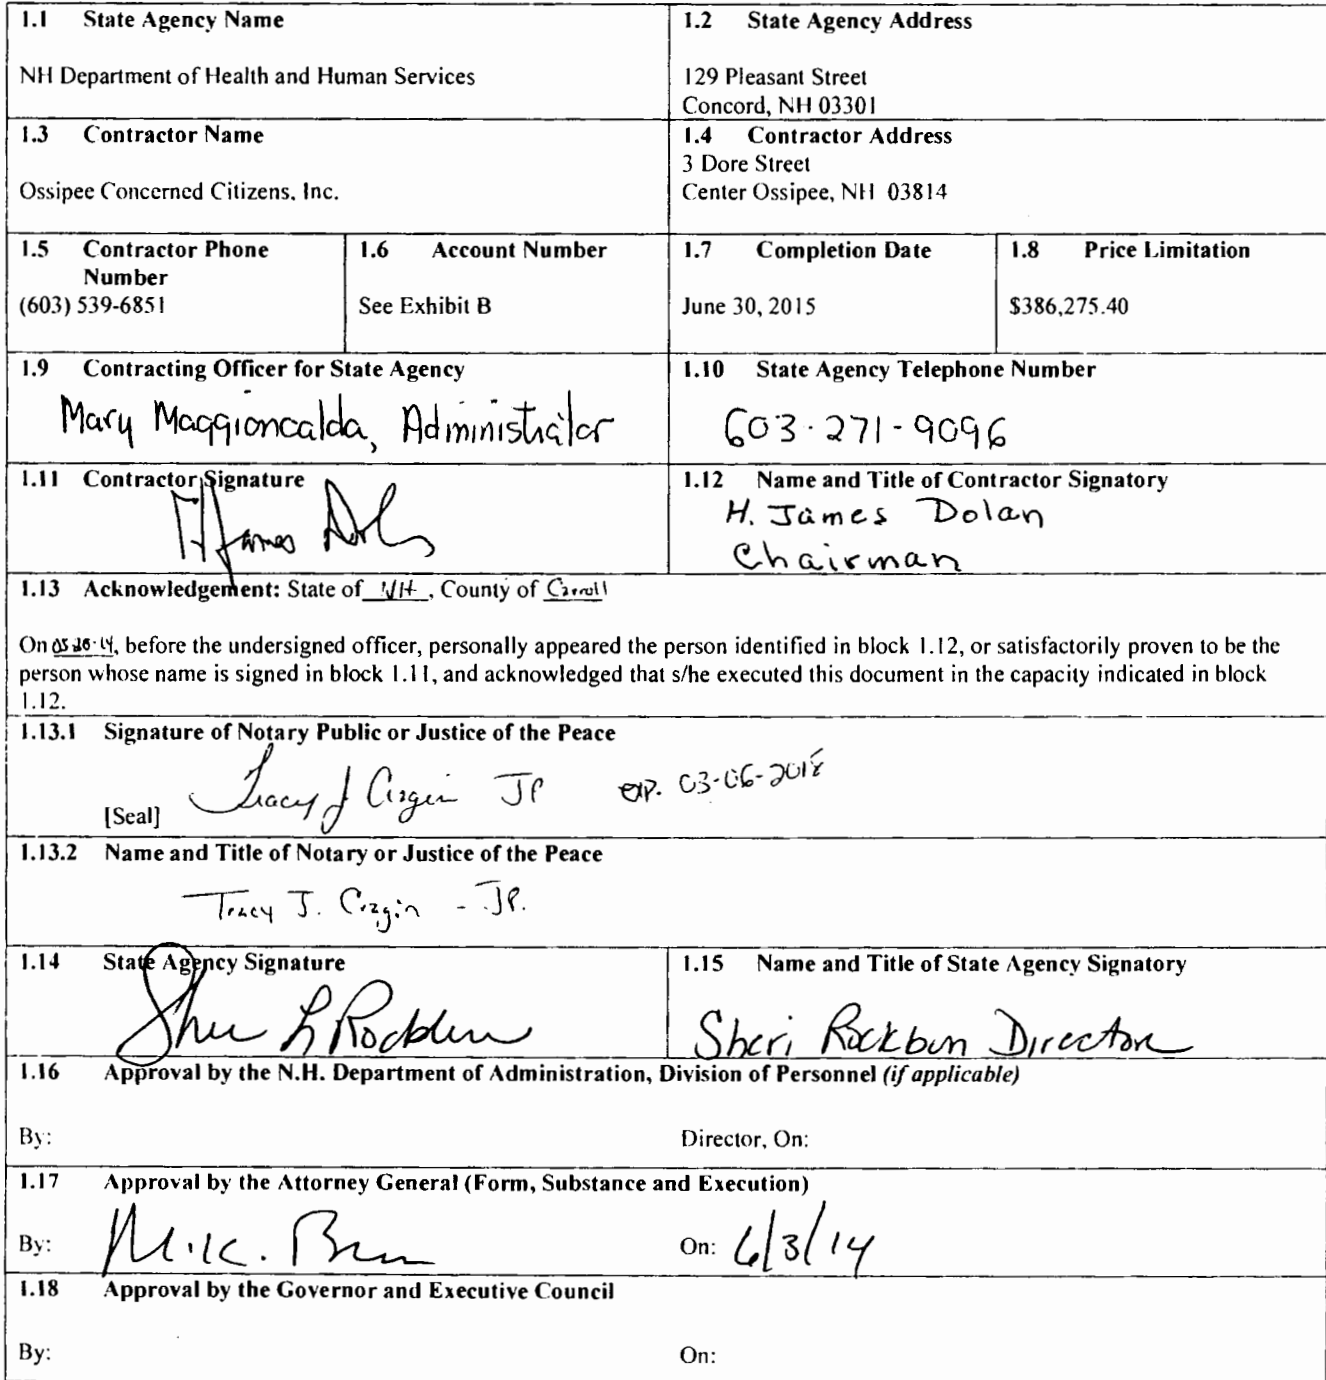 1.1 State Agency Name
NH Department of Health and Human Services
1.2 State Agency Address
129 Pleasant Street
Concord, NH 03301
1.3 Contractor Name
Ossipee Concerned Citizens, Inc.
1.4 Contractor Address
3 Dore Street
Center Ossipee, NH 03814
1.5 Contractor Phone
Number
(603) 539-6851
1.6 Account Number
See Exhibit B
1.7 Completion Date
June 30, 2015
1.8 Price Limitation
$386,275.40
1.9 Contracting Officer for State Agency
Mary Maggioncalda, Administrator
1.10 State Agency Telephone Number
603-271-9096
1.11 Contractor Signature
H James
1.12 Name and Title of Contractor Signatory
H. James Dolan
Chairman
1.13 Acknowledgement: State of NH, County of Carroll
On, before the undersigned officer, personally appeared the person identified in block 1.12, or satisfactorily proven to be the
person whose name is signed in block 1.11, and acknowledged that s/he executed this document in the capacity indicated in block
1.12.
1.13.1 Signature of Notary Public or Justice of the Peace
[Seal] Tracy J JP exp. 03-06-2018
1.13.2 Name and Title of Notary or Justice of the Peace
Tracy J. - JP.
1.14 State Agency Signature
1.15 Name and Title of State Agency Signatory
Sheri Rockburn Director
1.16 Approval by the N.H. Department of Administration, Division of Personnel (if applicable)
By: Director, On:
1.17 Approval by the Attorney General (Form, Substance and Execution)
By: On: 6/3/14
1.18 Approval by the Governor and Executive Council
By: On: